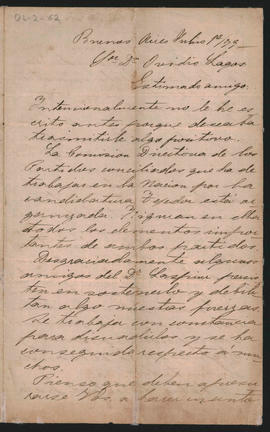 01-2-62
Buenos Aires Julio 1º/79
Sor Dr Ovidio Lagos
Estimado amigo:
Intencionalmente no le he es
crito antes porque deseaba
trasmitirle algo positivo.
La Comision Directiva de los
Partidos conciliados que ha de
trabajar en la Nacion por la
candidatura Tejedor está or
ganizada. Figuran en ella
todos los elementos impor
tantes de ambos partidos.
Desgraciadamente algunos
amigos del Dr Laspiur persis
ten en sostenerlo y debili
tan algo nuestras fuerzas.
Se trabaja con constancia
para disuadirlos y se ha
conseguido respecto á mu
chos.
Pienso que deben apresu
rarse Vds. a hacer